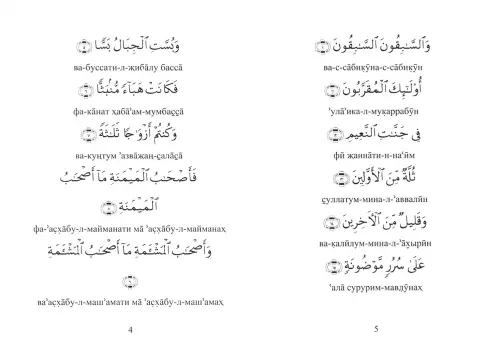 وَبُسَّتِ الْجِبَالُ بَسًّا ۝٥
ва-буссати-л-жиба̄лу басса̄
فَكَانَتْ هَبَاءً مُّنْبَثًّا ۝٦
фа-ка̄нат ҳаба̄'ам-мумбас̱с̱а̄
وَكُنْتُمْ أَزْوَاجًا ثَلَٰثَةً ۝٧
ва-кунтум 'азва̄жан̡-с̱ала̄с̱а̄
فَأَصْحَٰبُ الْمَيْمَنَةِ مَا أَصْحَٰبُ
الْمَيْمَنَةِ ۝٨
фа-'ас̣х̣а̄бу-л-майманати ма̄ 'ас̣х̣а̄бу-л-майманаҳ
وَأَصْحَٰبُ الْمَشْئَمَةِ مَا أَصْحَٰبُ الْمَشْئَمَةِ
۝٩
ва'ас̣х̣а̄бу-л-маш'амати ма̄ 'ас̣х̣а̄бу-л-маш'амаҳ
4
وَالسَّٰبِقُونَ السَّٰبِقُونَ ۝١٠
ва-с-са̄биқӯна-с-са̄биқӯн
أُولَٰئِكَ الْمُقَرَّبُونَ ۝١١
'ула̄'ика-л-муқаррабӯн
فِي جَنَّٰتِ النَّعِيمِ ۝١٢
фӣ жанна̄ти-н-на'ӣм
ثُلَّةٌ مِّنَ الْأَوَّلِينَ ۝١٣
с̱уллатум-мина-л-'аввалӣн
وَقَلِيلٌ مِّنَ الْآخِرِينَ ۝١٤
ва-қалӣлум-мина-л-'а̄х̮ирӣн
عَلَىٰ سُرُرٍ مَّوْضُونَةٍ ۝١٥
'ала̄ сурурим-мавдӯнаҳ
5